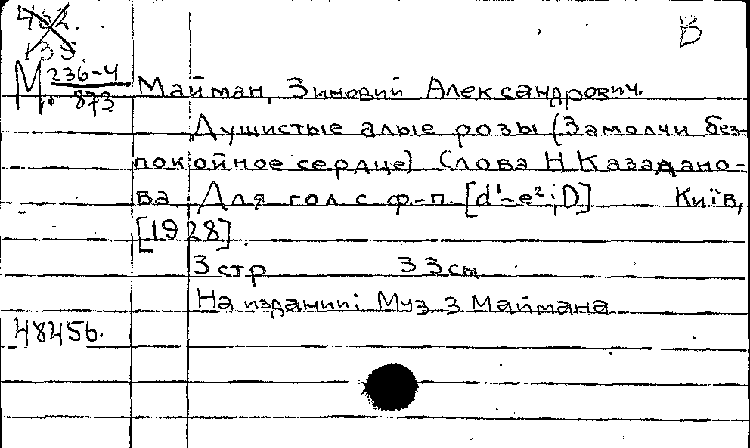 В
М 236-4
873
Майман, Зиновий Александрович.
Душистые алые розы (Замолчи без-
покойное сердце) Слова Н Казадано-
ва Для гол с ф-п [d¹-e²; D] Київ,
[1928].
3 стр 33см
На издании: Муз З Маймана
48456.